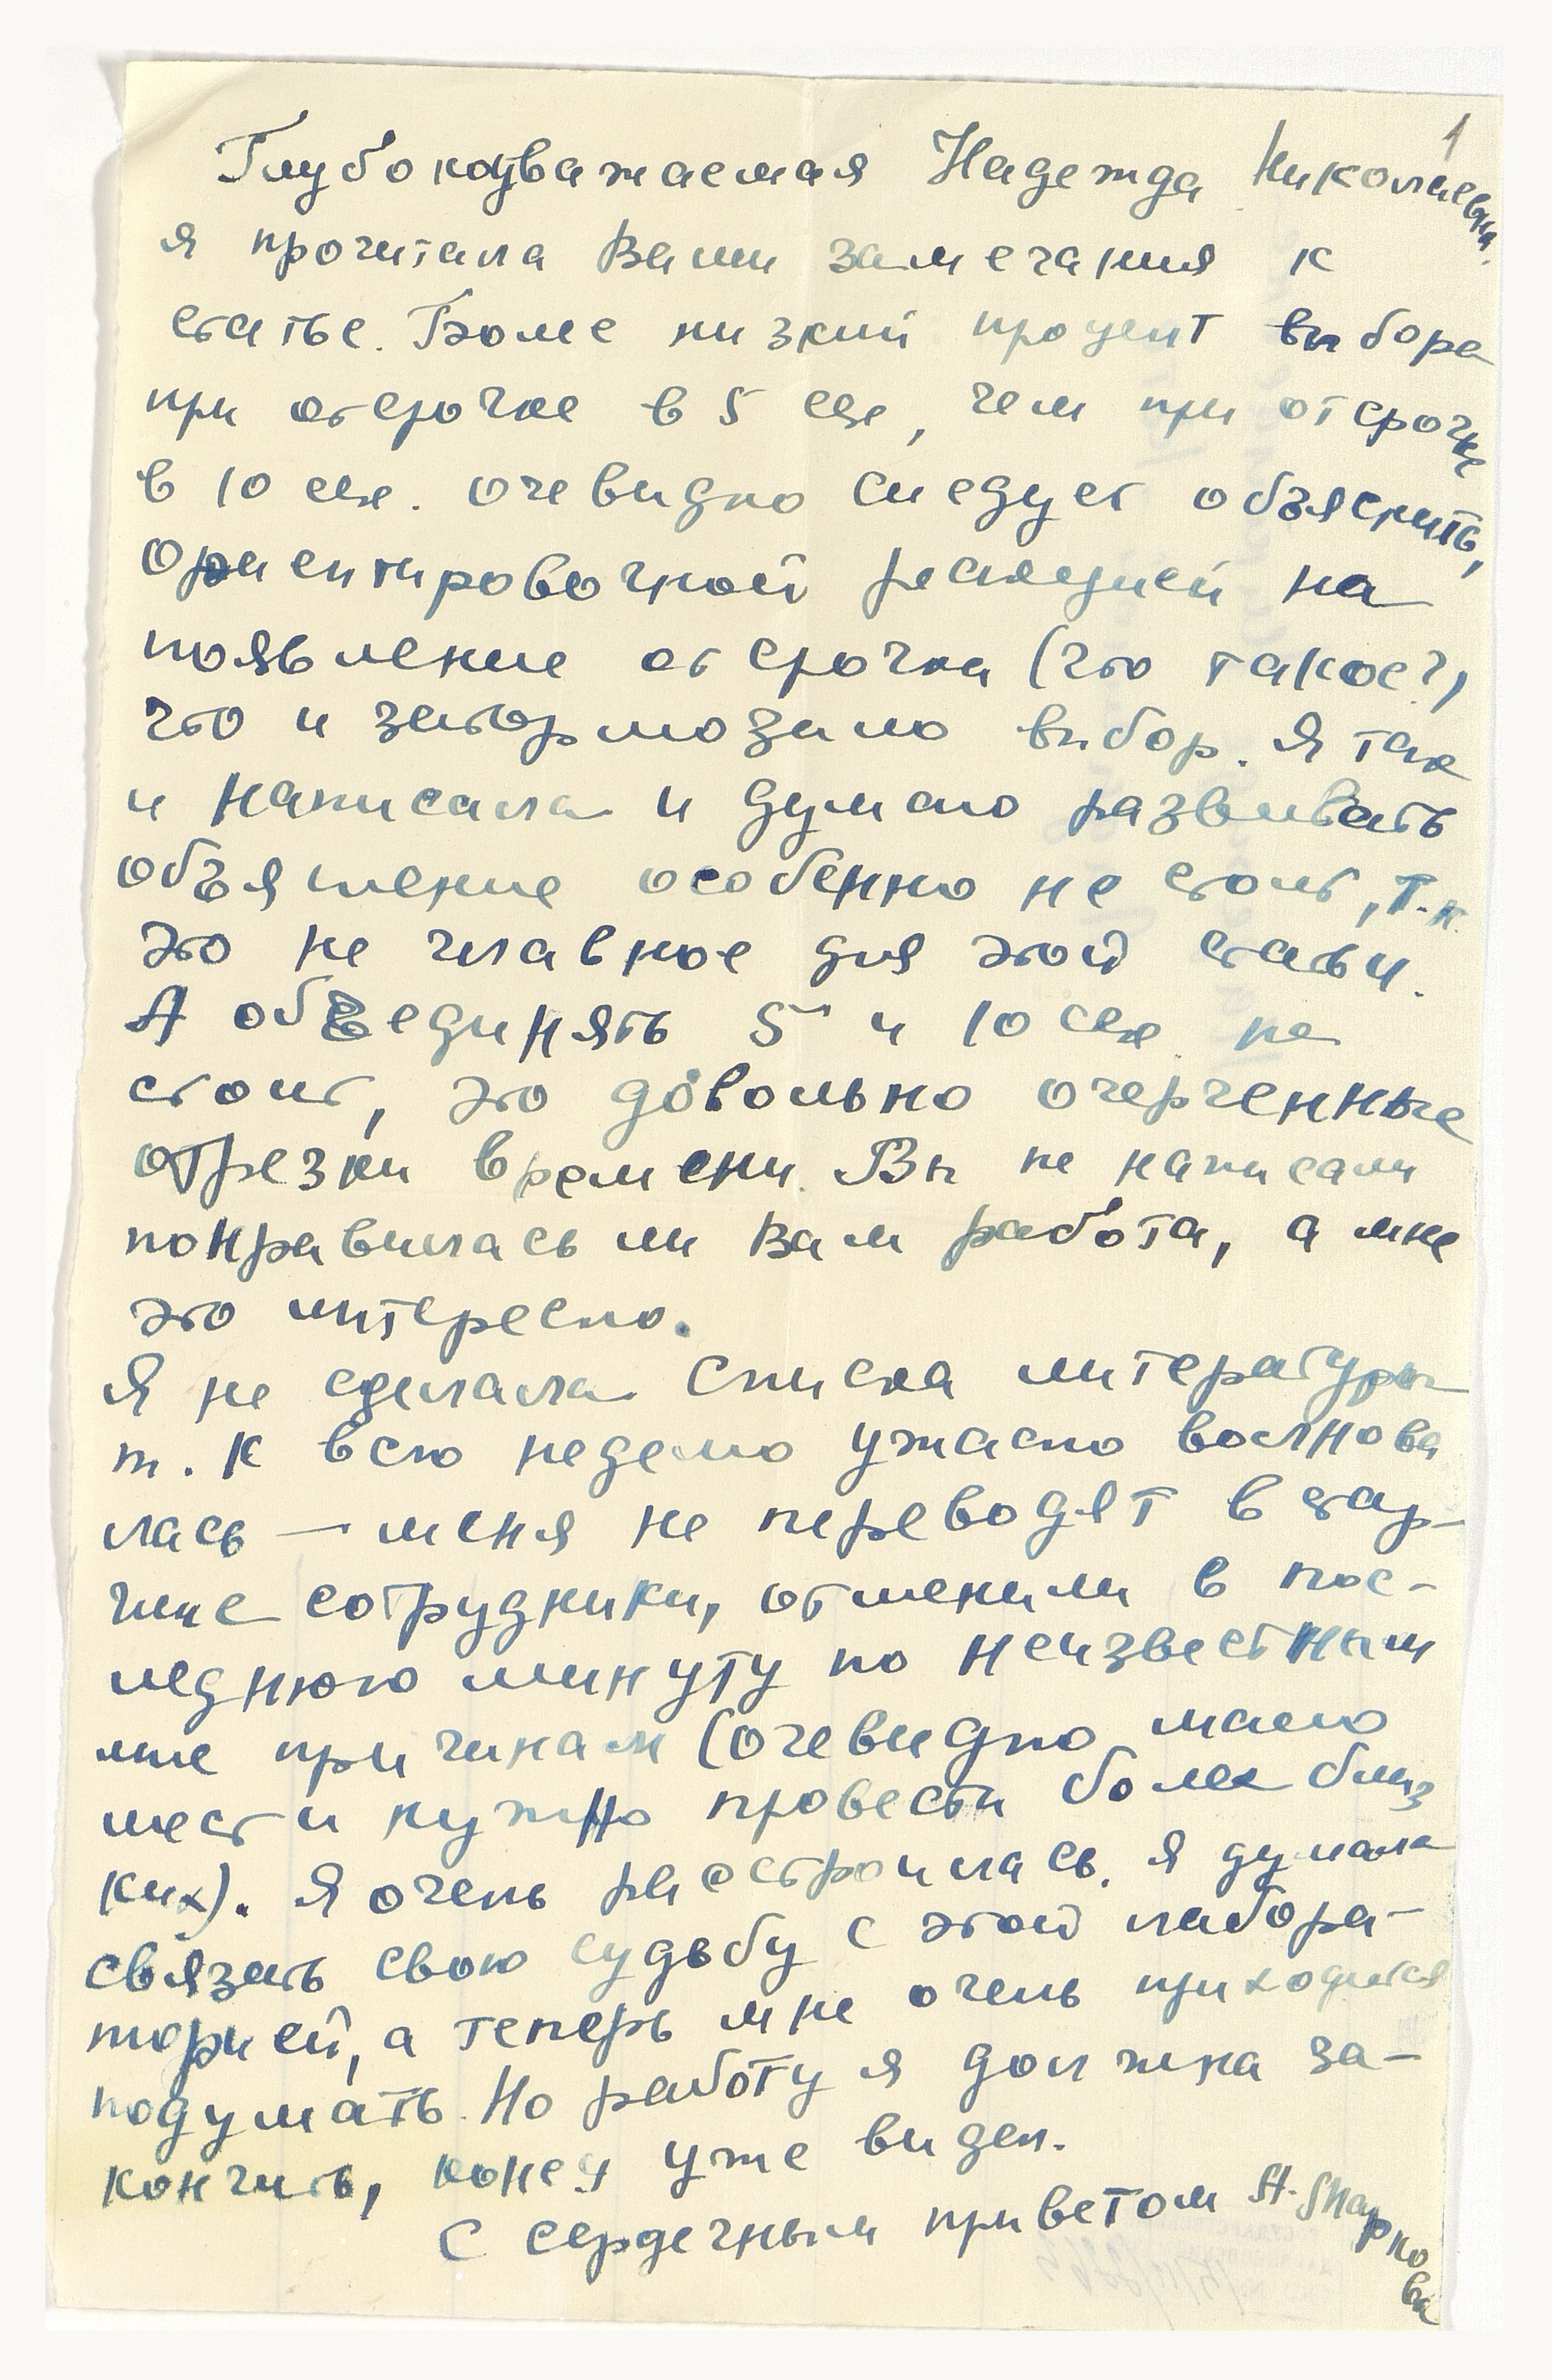 1
Глубокоуважаемая Надежда Николаевна.
я прочитала Ваши замечания к
статье. Более низкий процент выбора
при отсрочке в 5 сек, чем при отсрочке
в 10 сек. очевидно следует объяснить,
ориентировочной реакцией на
появление отсрочки (что такое?)
что и затормозило выбор. Я так
и написала и думаю развивать
объяснение особенно не стоит, т.к.
это не главное для этой статьи.
А объединять 5 и 10 сек не
стоит, это довольно очерченные
отрезки времени. Вы не написали
понравилась ли Вам работа, а мне
это интересно.
Я не сделала списка литературы
т. к всю неделю ужасно волнова
лась — меня не переводят в стар-
шие сотрудники, отменили в пос-
леднюю минуту по неизвестным
мне причинам (очевидно мало
мест и нужно провести более близ
ких). Я очень расстроилась. Я думала
связать свою судьбу с этой лабора-
торией, а теперь мне очень приходится
подумать. Но работу я должна за-
кончить, конец уже виден.
С сердечным приветом А.